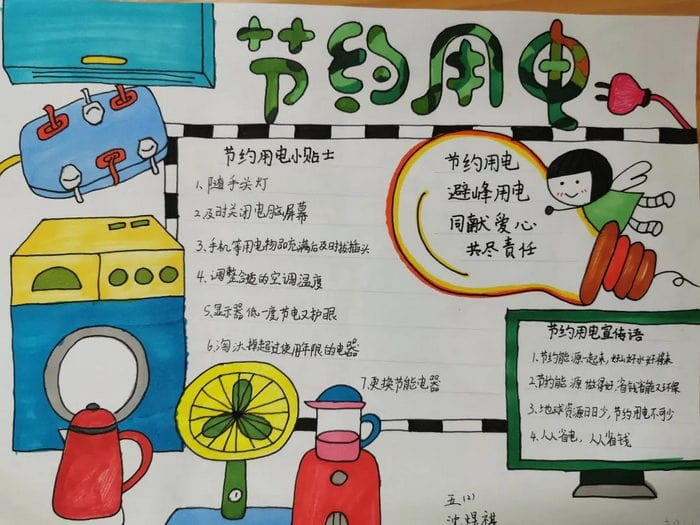 节约用电
节约用电小贴士
1、随手关灯
2、及时关闭电脑屏幕
3、手机等用电物品充满后及时拔插头
4、调整合适的空调温度
5、显示器低一度节电又护眼
6、淘汰掉超过使用年限的电器
7、更换节能电器
节约用电
避峰用电
同献爱心
共尽责任
节约用电宣传语
1、节约能源一起来,好山好水好带来
2、节约能源做得好,省钱省能又环保
3、地球资源日日少,节约用电不可少
4、人人省电,人人省钱
五(2)